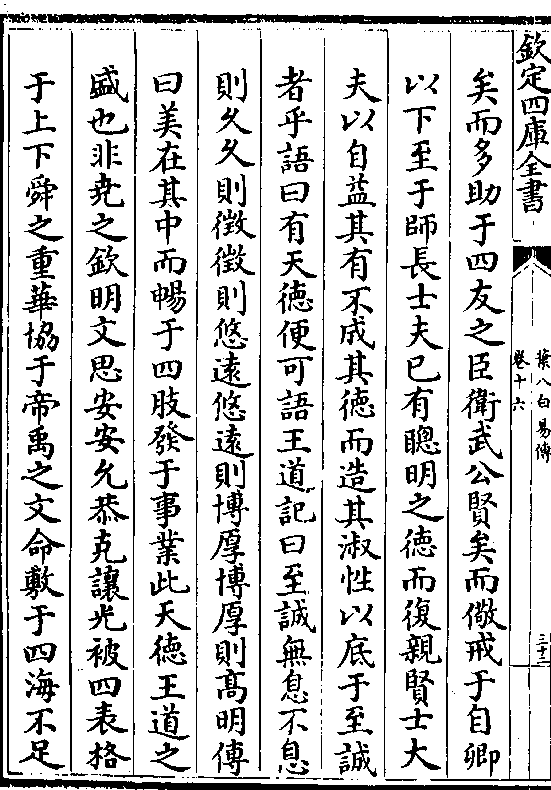 欽定四庫全書
葉八白易傳
卷十六
三十二
矣而多助于四友之臣衛武公賢矣而儆戒于自卿
以下至于師長士夫已有聰明之德而復親賢士大
夫以自益其有不成其德而造其淑性以底于至誠
者乎語曰有天德便可語王道記曰至誠無息不息
則久久則徴徴則悠遠悠遠則博厚博厚則髙明傳
曰美在其中而暢于四肢發于事業此天德王道之
盛也非堯之欽明文思安安允恭克讓光被四表格
于上下舜之重華協于帝禹之文命敷于四海不足